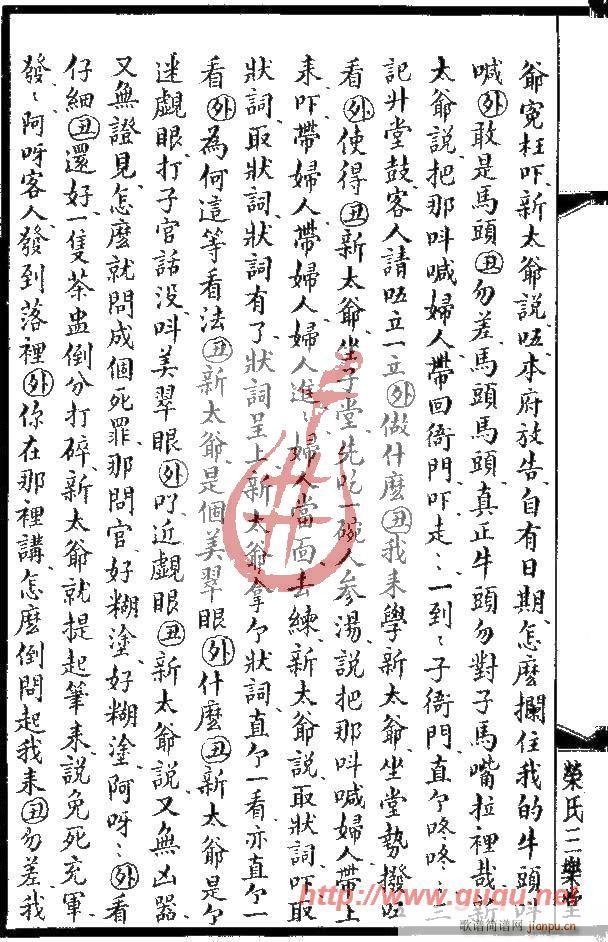 爺寃枉吓新太爺說㕶本府放告自有日期怎麼攔住我的牛頭
喊外敢是馬頭丑勿差馬頭馬頭真正牛頭勿對子馬嘴拉裡哉新
太爺說把那呌喊婦人帶回衙門吓走〻一到〻子衙門直个咚咚
記升堂鼓客人請㕶立一立外做什麼丑我來學新太爺坐堂勢撥㕶
看外使得丑新太爺坐子堂先吃一碗人參湯說把那呌喊婦人帶上
來吓帶婦人帶婦人婦人進〻婦人當面去練新太爺說取狀詞吓取
狀詞取狀詞狀詞有了狀詞呈上新太爺拿个狀詞直个一看亦直个一
看外為何這等看法丑新太爺是個美翠眼外什麼丑新太爺是个
迷覷眼打子官話没呌美翠眼外近覷眼丑新太爺說又無凶器
又無證見怎麼就問成個死罪那問官好糊塗好糊塗阿呀〻外看
仔細丑還好一隻茶盅倒分打碎新太爺就提起筆來說免死充軍
發〻阿呀客人發到落裡外你在那裡講怎麼倒問起我來丑勿差我
榮氏三樂堂
http://www.ququ.net
歌谱简谱网
jianpu.cn